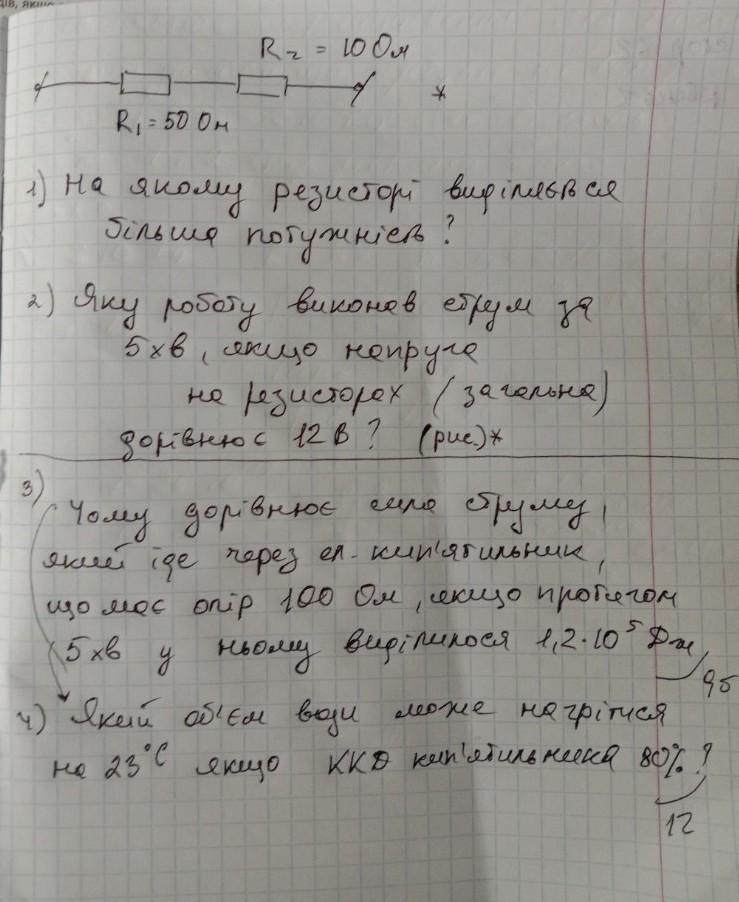 ців, якщо
R₂ = 10 Ом
*
R₁ = 50 Ом
1) На якому резисторі виділяється
більша потужність?
2) Яку роботу виконав струм за
5 хв, якщо напруга
на резисторах (загальна)
дорівнює 12 В? (рис.)*
3)
Чому дорівнює сила струму,
який іде через ел. кип'ятильник,
що має опір 100 Ом, якщо протягом
5 хв у ньому виділилося 1,2·10⁵ Дж
9б
4) Який об'єм води може нагрітися
на 23°C якщо ККД кип'ятильника 80%?
12